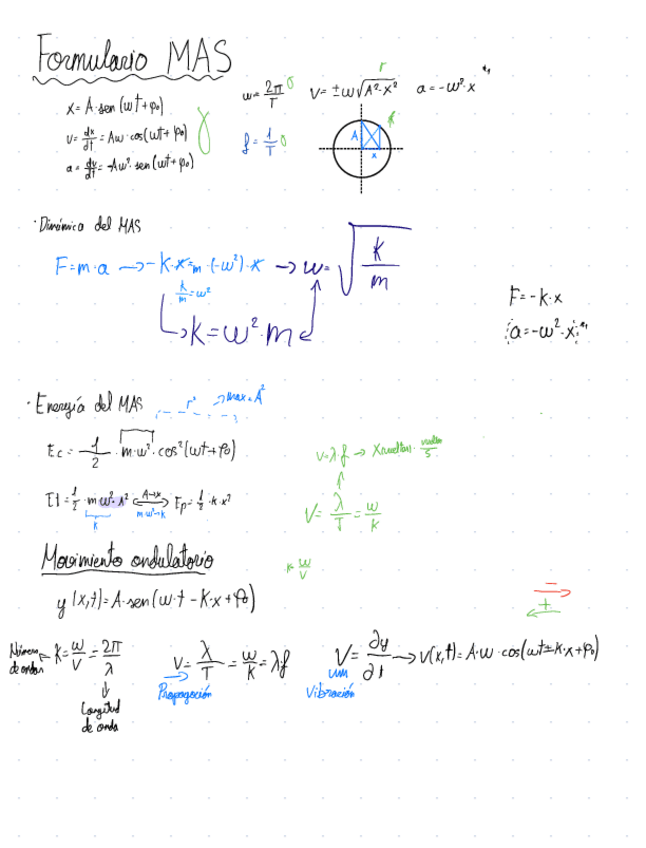 Formulario MAS
x = A·sen(ωt+φ₀)
v = dx/dt = Aω·cos(ωt+φ₀)
a = dv/dt = -Aω²·sen(ωt+φ₀)
ω = 2π/T
f = 1/T
r
v = ±ω√(A²-x²)
a = -ω²·x
A
x
·Dinámica del MAS
F = m·a → -K·x = m·(-ω²)·x → ω = √(K/m)
K/m = ω²
K = ω²·m
F = -K·x
a = -ω²·x
·Energía del MAS
r² → max = A²
Ec = 1/2·m·ω²·cos²(ωt+φ₀)
Et = 1/2·m·ω²·A² A→x m·ω²→K Ep = 1/2·K·x²
K
v = λ·f → X vueltas· vueltas/s
v = λ/T = ω/K
Movimiento ondulatorio
K ω/v
y(x,t) = A·sen(ω·t - K·x + φ₀)
−
+
Número de ondas
K = ω/v = 2π/λ
Longitud
de onda
v = λ/T = ω/K = λ·f
Propagación
V = ∂y/∂t → v(x,t) = A·ω·cos(ωt±K·x+φ₀)
Vibración